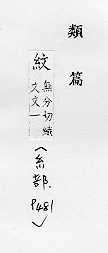 類篇
紋
無分切織
文文一
〈糸部.P481〉